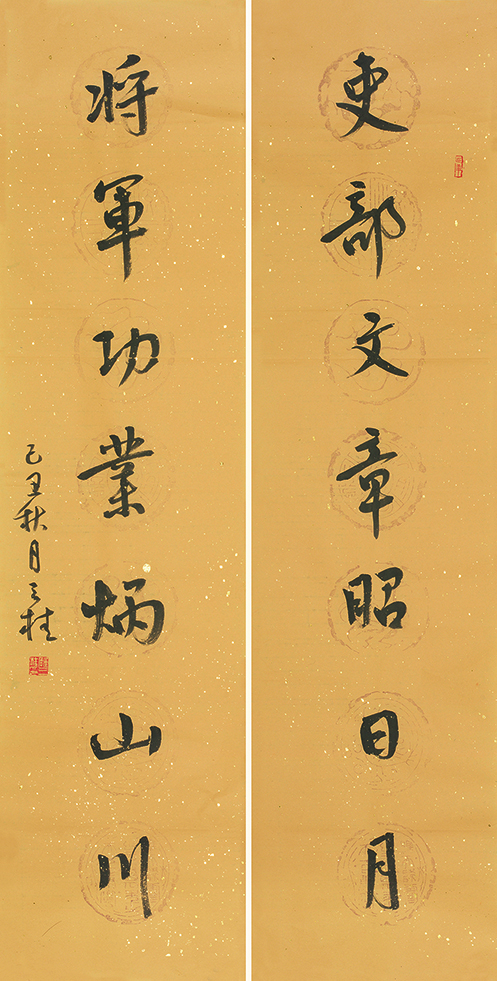 吏部文章昭日月
将軍功業炳山川
己丑秋月之桂